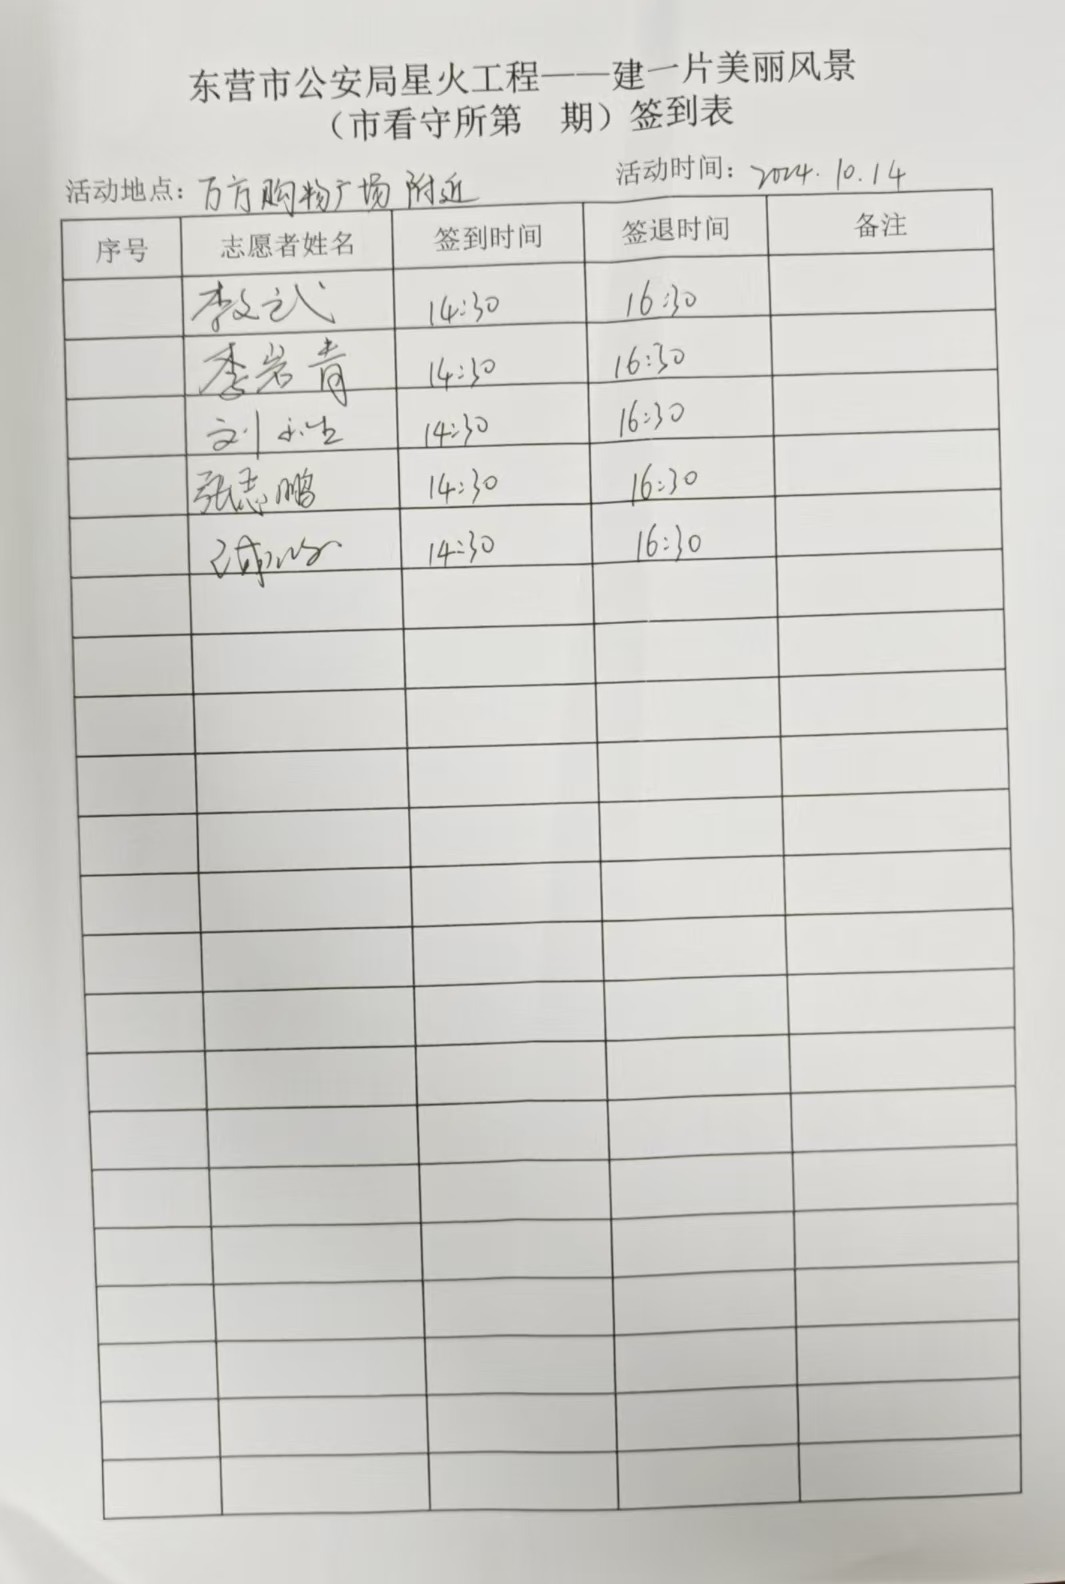 东营市公安局星火工程——建一片美丽风景
（市看守所第 期）签到表
活动地点：万方购物广场 附近 活动时间：2024.10.14
序号 志愿者姓名 签到时间 签退时间 备注
李文武 14:30 16:30
季岩青 14:30 16:30
刘 14:30 16:30
张志鹏 14:30 16:30
14:30 16:30